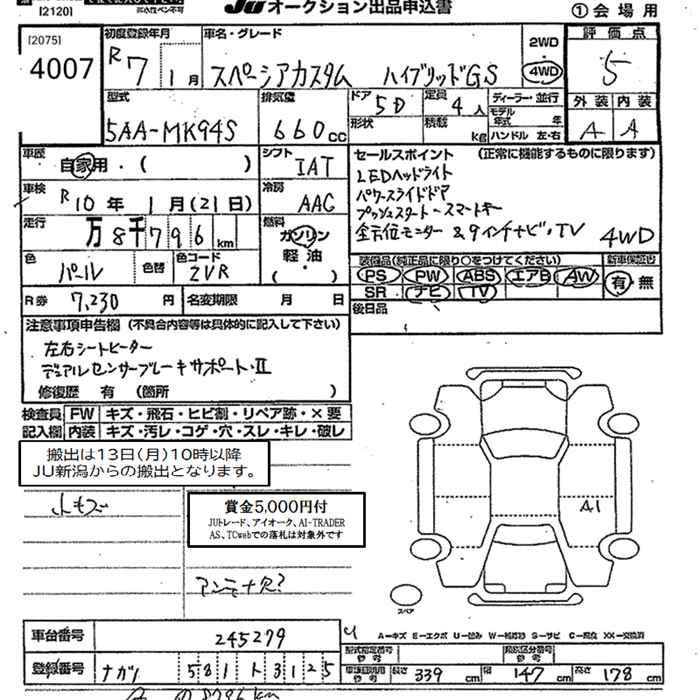 [2120]
JU オークション出品申込書
①会場用
[2075]
4007
初度登録年月
R7 1月
車名・グレード
スペーシアカスタム ハイブリッドGS
2WD
4WD
評価点
5
型式
5AA-MK94S
排気量
660cc
ドア
5D
形状
定員
4人
積載
kg
ディーラー・並行
モデル年式 年
ハンドル 左・右
外装 内装
A A
車歴
自家用・( )
シフト
IAT
セールスポイント (正常に機能するものに限ります)
LEDヘッドライト
パワースライドドア
プッシュスタート-スマートキー
全方位モニター &9インチナビ・TV 4WD
車検
R10年 1月(21日)
冷房
AAC
走行
万8千796km
燃料
ガソリン
軽油
( )
色
パール
色替
色コード
ZVR
装備品(純正品に限り〇をつけてください)
PS PW ABS エアB AW
SR ナビ TV
新車保証書
有・無
R券 7,230円
名変期限 月 日
後日品
注意事項申告欄(不具合内容等は具体的に記入して下さい)
左右シートヒーター
デュアルセンサーブレーキサポート・II
修復歴 有 (箇所 )
検査員記入欄
FW キズ・飛石・ヒビ割・リペア跡・×要
内装 キズ・汚レ・コゲ・穴・スレ・キレ・破レ
搬出は13日(月)10時以降
JU新潟からの搬出となります。
賞金5,000円付
JUトレード、アイオーク、AI-TRADER
AS、TCwebでの落札は対象外です
アンテナ欠?
A1
スペア
車台番号 245279
A-キズ E-エクボ U-凹み W-補修跡 S-サビ C-腐食 XX-交換済
登録番号 ナガノ 581 ト 3125
型式指定番号
参考
類別区分番号
参考
長さ 339 cm 幅 147 cm 高さ 178 cm